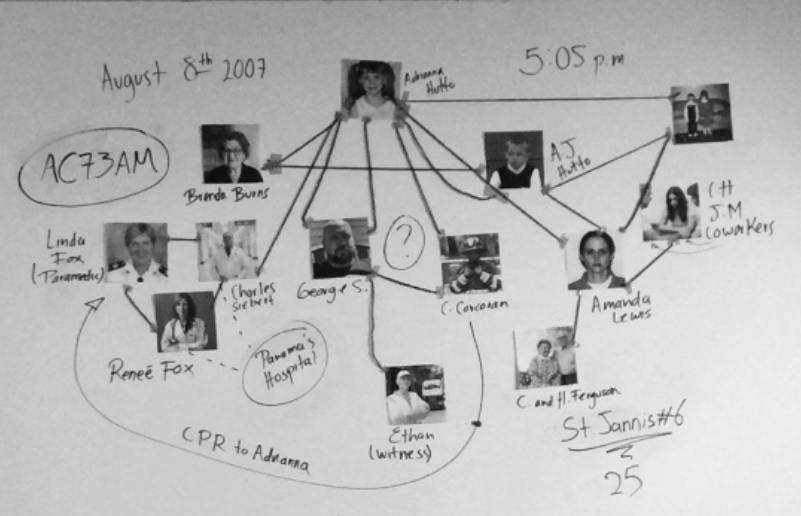 August 8th 2007
5:05 p.m
Adrianna
Hutto
AC73AM
Brenda Burns
A.J
Hutto
CH
J.M
Coworkers
Linda
Fox
(Paramedic)
Charles
Siebert
George S.
?
C. Corconan
Amanda
Lewis
Reneé Fox
Panama's
Hospital
C. and H. Ferguson
Ethan
(witness)
CPR to Adrianna
St. Jannis #6
25